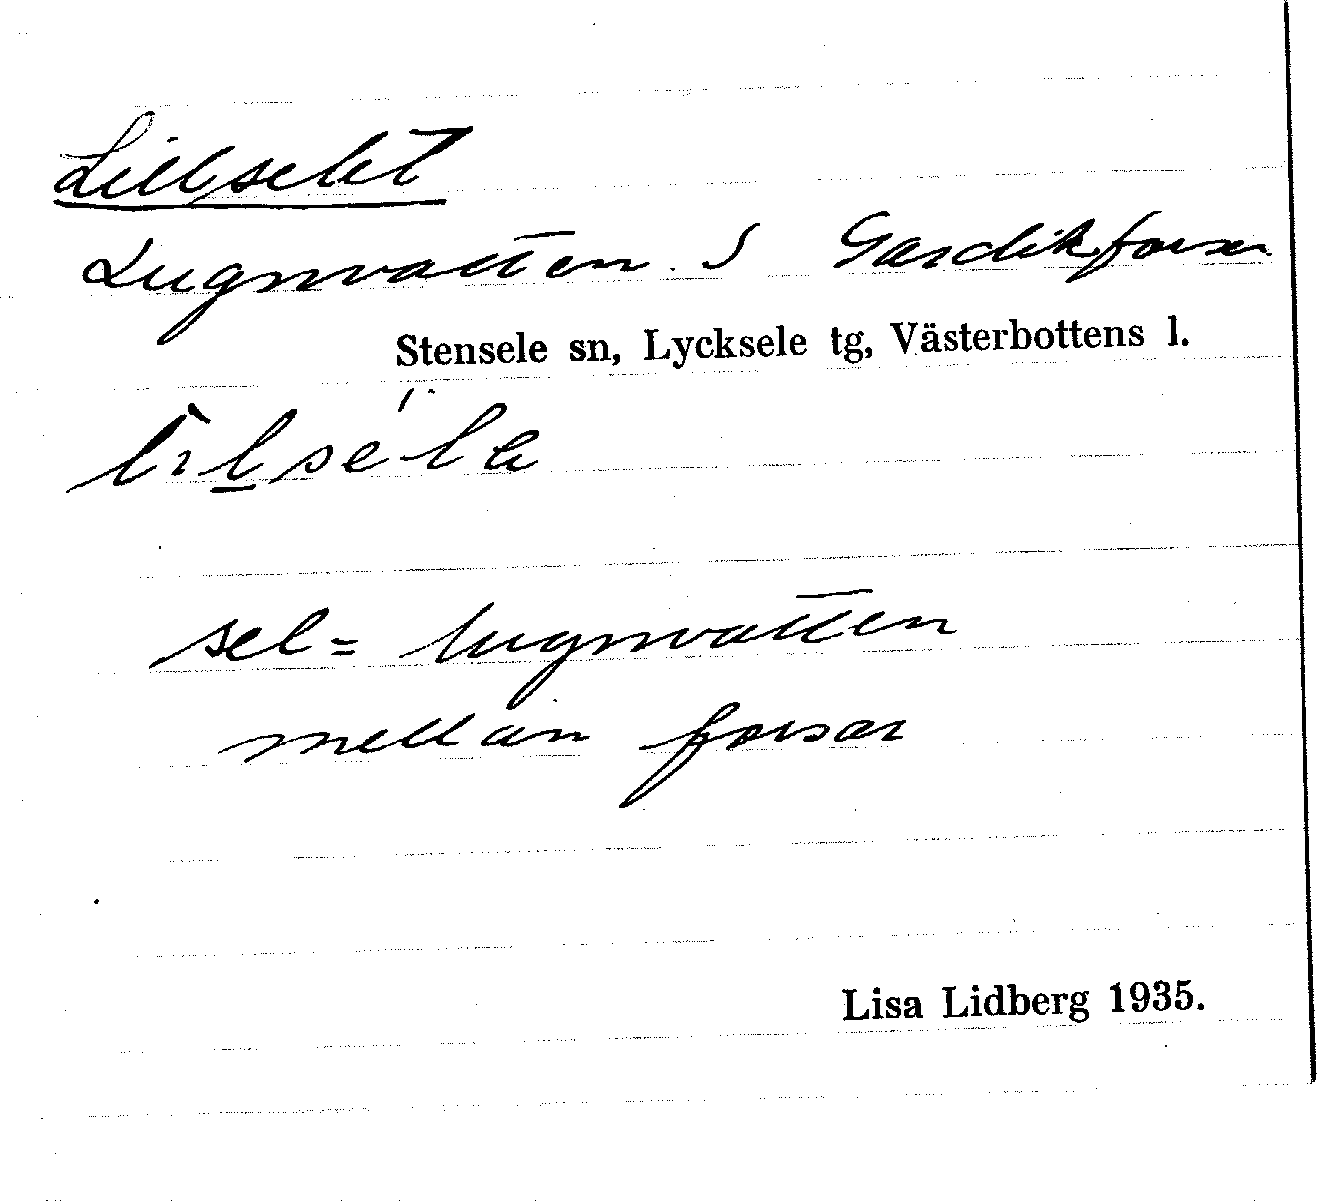 Lillselet
Lugnvatten i Gardikforsen
Stensele sn, Lycksele tg, Västerbottens l.
sel = lugnvatten
mellan forsar
Lisa Lidberg 1935.